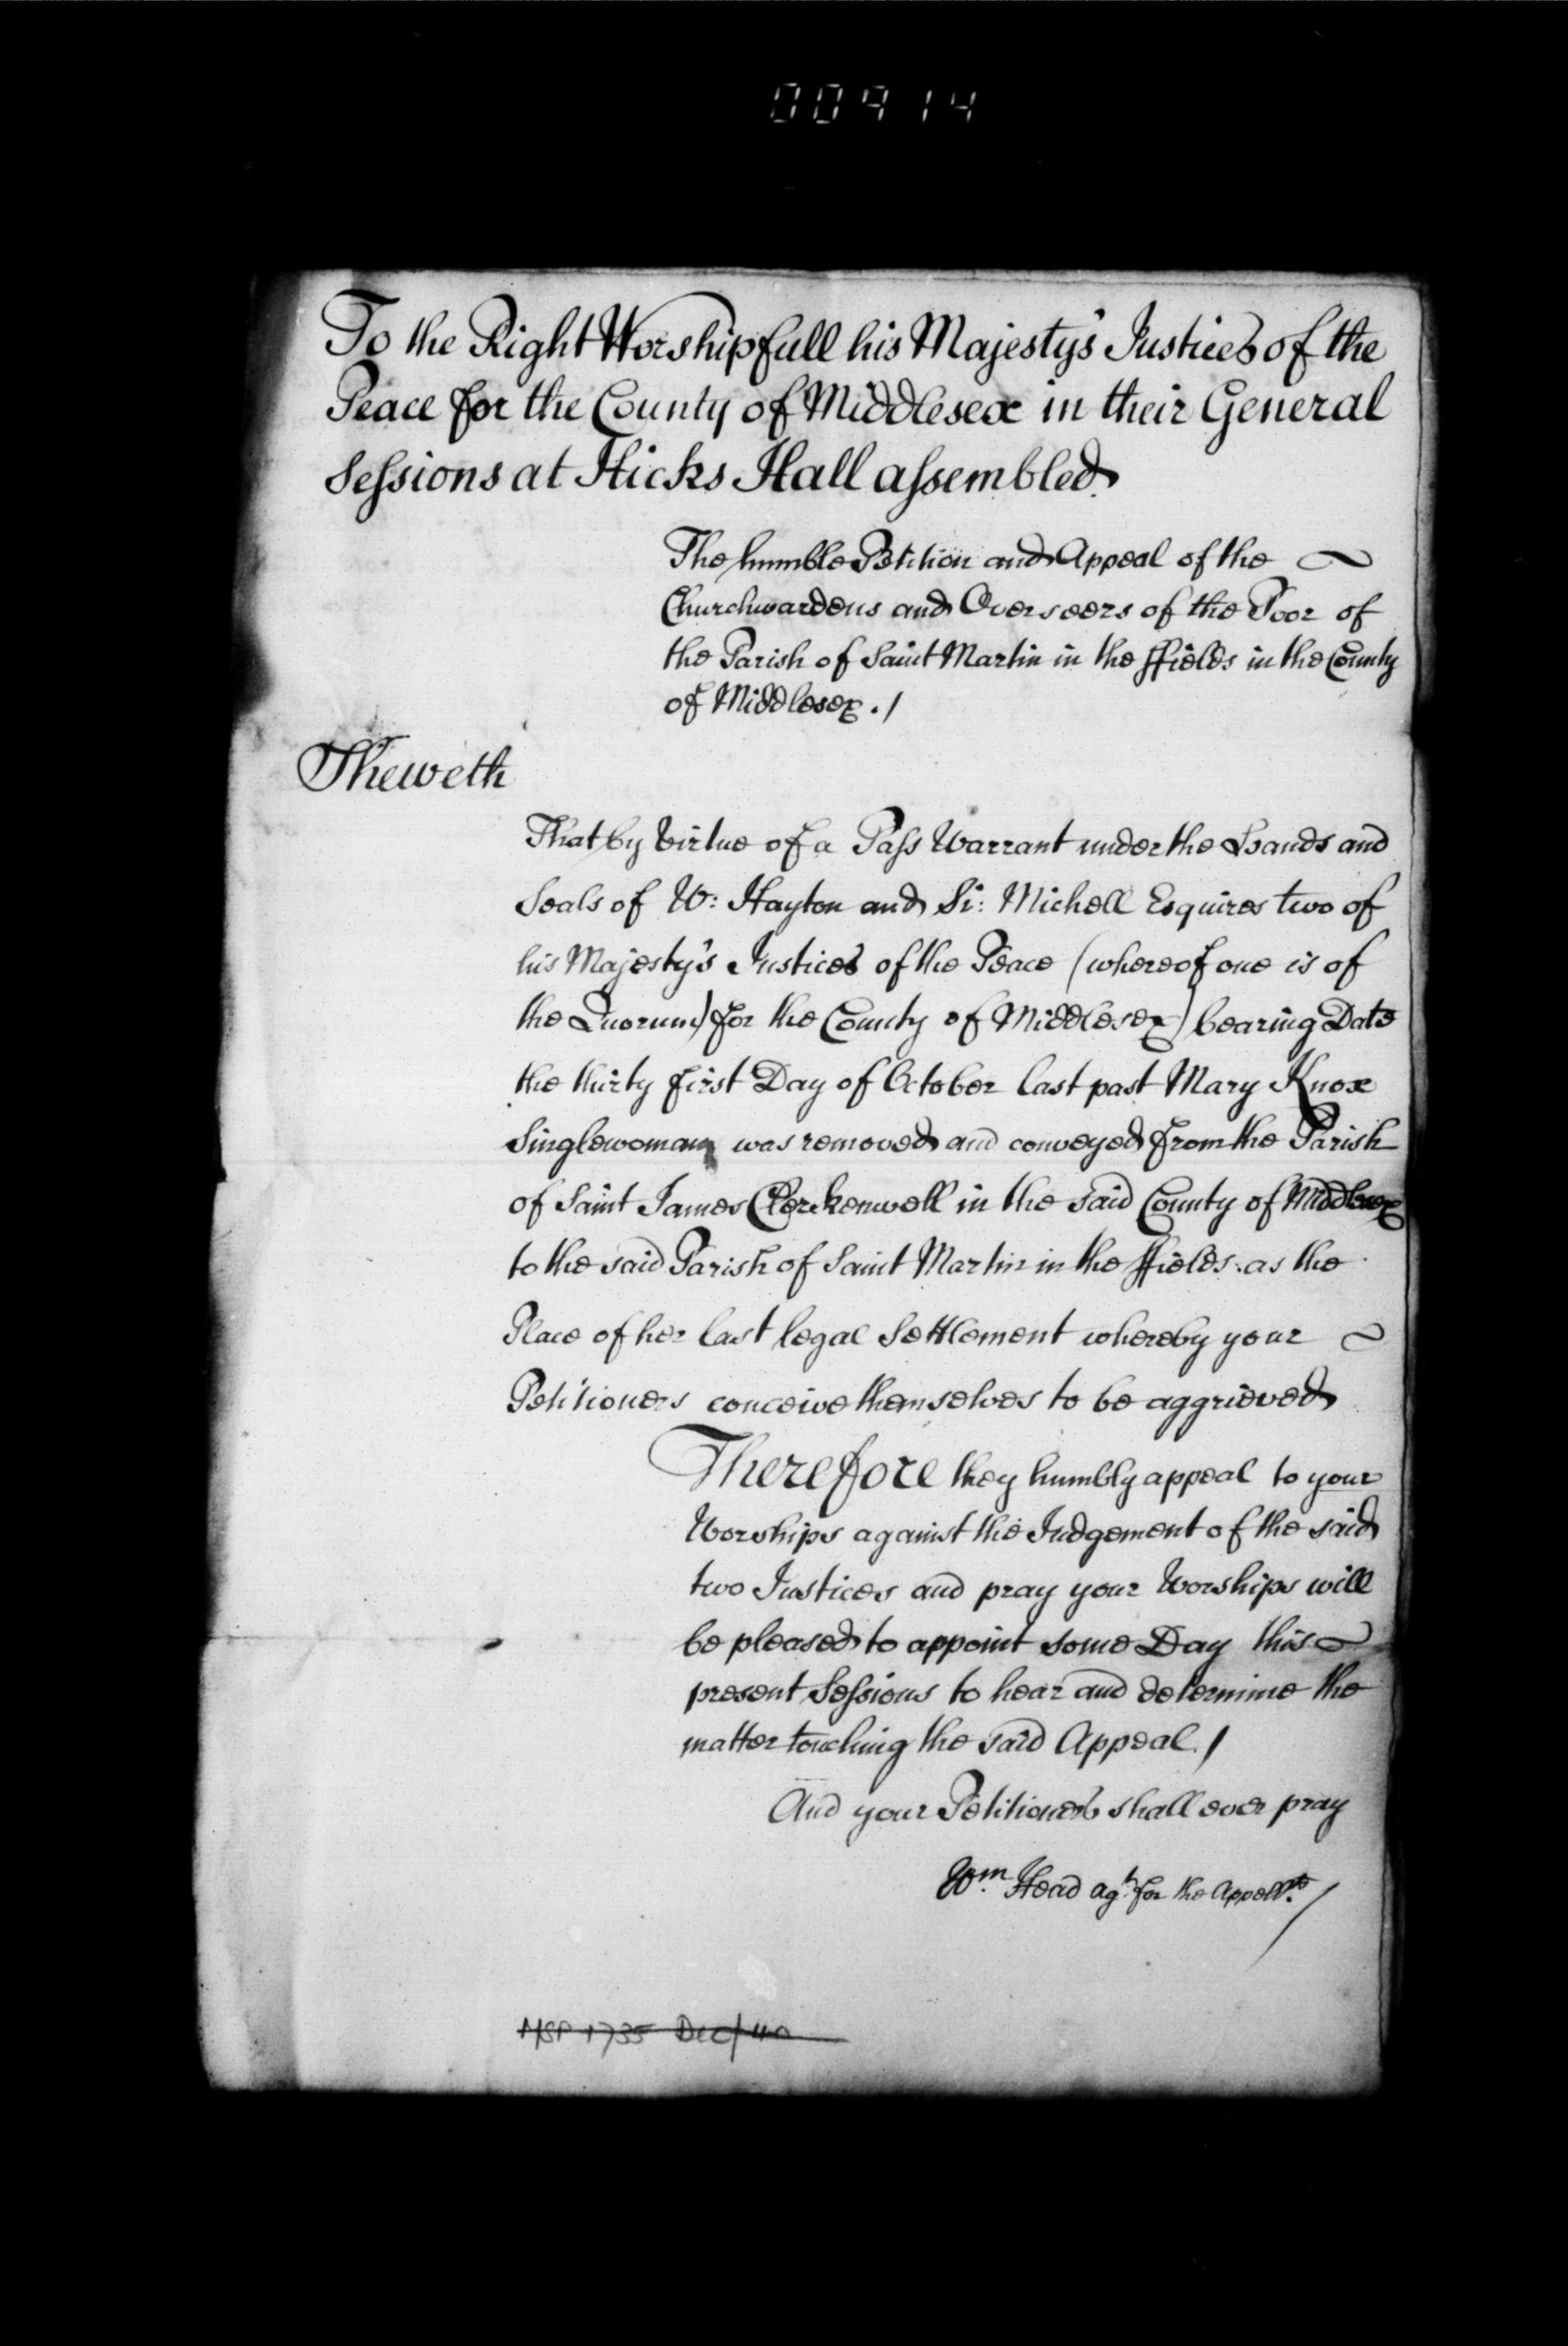 00914
To the Right Worshipfull his Majesty's Justices of the
Peace for the County of Middlesex in their General
Sessions at Hicks Hall assembled.
The humble Petition and Appeal of the
Churchwardens and Overseers of the Poor of
the Parish of Saint Martin in the ffields in the County
of Middlesex ./
Sheweth
That by Virtue of a Pass Warrant under the Hands and
Seals of W: Hayton and Si: Michell Esquires two of
his Majesty's Justices of the Peace (whereof one is of
the Quorum) for the County of Middlesex) bearing Date
the thirty first Day of October last past Mary Knox
Singlewoman was removed and conveyed from the Parish
of Saint James Clerkenwell in the said County of Middlesex
to the said Parish of Saint Martin in the ffields as the
Place of her last legal Settlement whereby your
Petitioners conceive themselves to be aggrieved
Therefore they humbly appeal to your
Worships against the Judgement of the said
two Justices and pray your Worships will
be pleased to appoint some Day this
present Sessions to hear and determine the
matter touching the said Appeal ./
And your Petitioners shall ever pray
Wm. Head agt. for the Appellts. /
MSP 1735 Dec/40